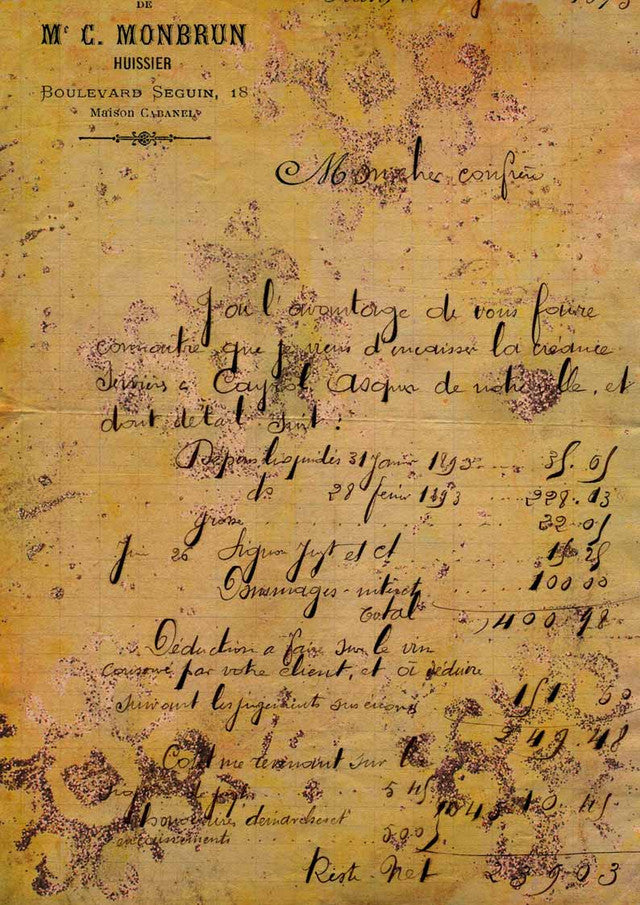 DE
Mᵉ C. MONBRUN
HUISSIER
BOULEVARD SEGUIN, 18
Maison CABANEL
1893
Mon cher confrère
J'ai l'avantage de vous faire
connaitre que je viens d'encaisser la créance
Cayrol de notre ville, et
dont detail suit :
Depens liquidés 31 Janvier 1893 .... 35.05
do 28 fevrier 1893 .... 228.13
grosse .... 22.05
Juin 26 Signon Jugt et Ct .... 15.25
Dommages-intérêts .... 100 00
Total 400 98
Déduction a faire sur le vin
consomé par votre client, et à deduire
suivant les jugements susenoncés 151 50
249.48
Cout me revenant sur le
5 45
10 45 10.45
honoraires demarches et
encaissements 5 00
Reste Net 239 03